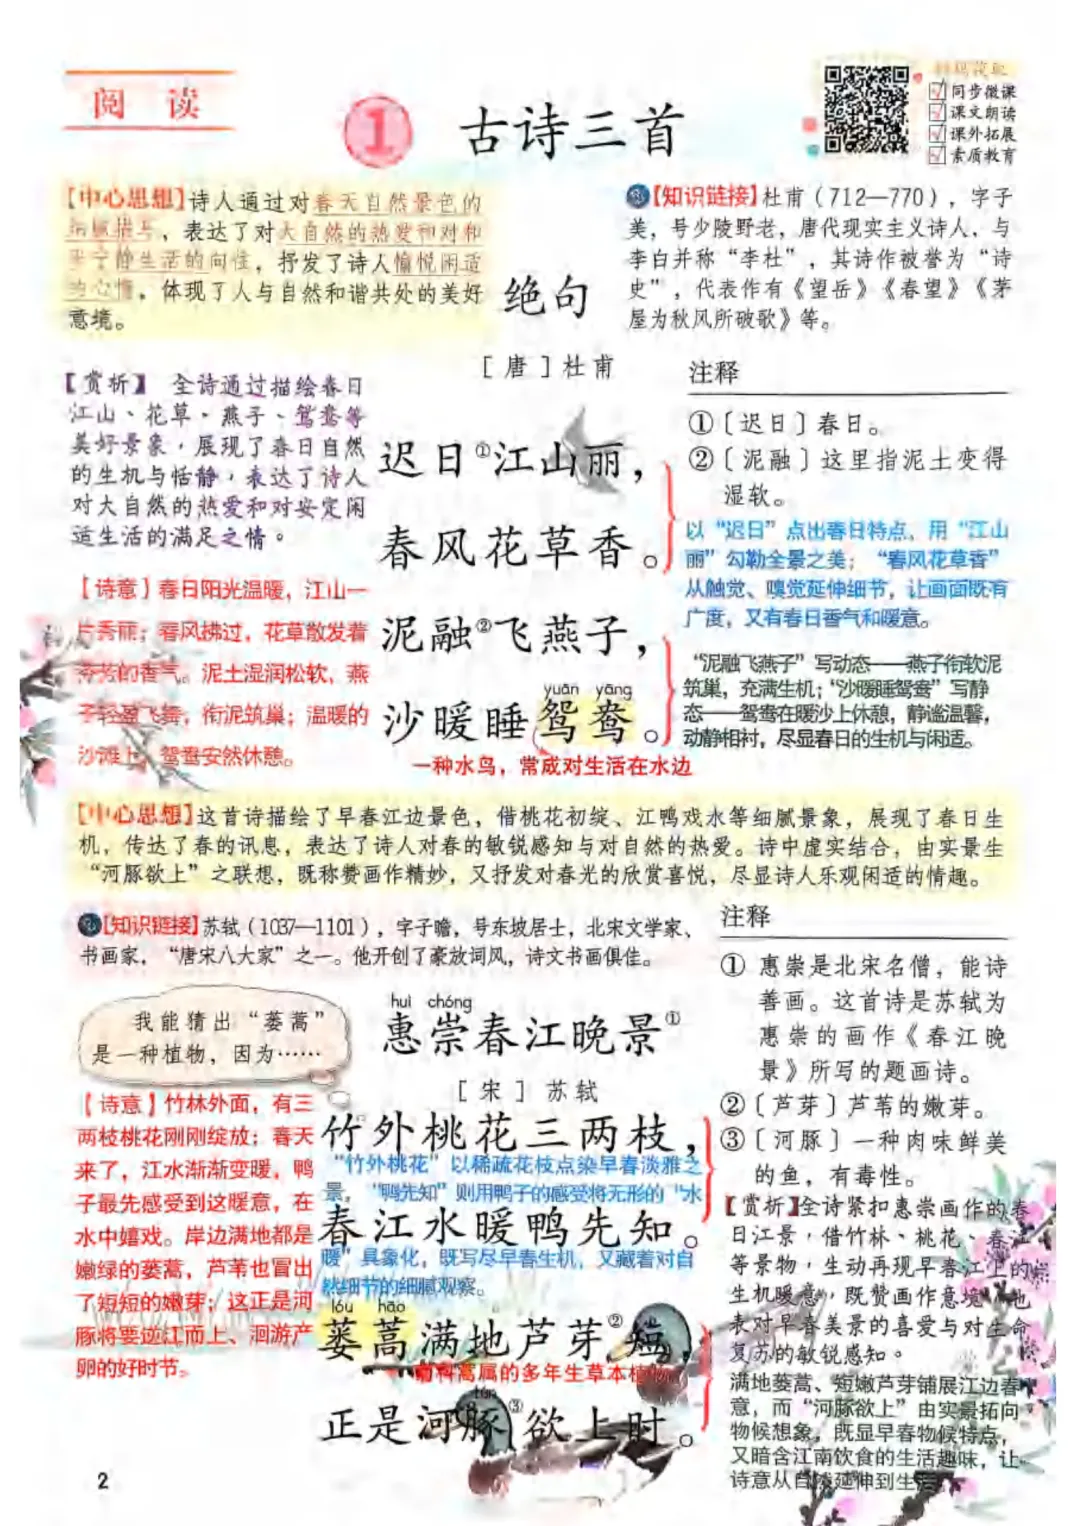 阅 读
1 古诗三首
扫码获取
同步微课
课文朗读
课外拓展
素质教育
【中心思想】诗人通过对春天自然景色的
细腻描写，表达了对大自然的热爱和对和
平宁静生活的向往，抒发了诗人愉悦闲适
的心情，体现了人与自然和谐共处的美好
意境。
【知识链接】杜甫（712—770），字子
美，号少陵野老，唐代现实主义诗人，与
李白并称“李杜”，其诗作被誉为“诗
史”，代表作有《望岳》《春望》《茅
屋为秋风所破歌》等。
绝句
［唐］杜甫
【赏析】 全诗通过描绘春日
江山、花草、燕子、鸳鸯等
美好景象，展现了春日自然
的生机与恬静，表达了诗人
对大自然的热爱和对安定闲
适生活的满足之情。
【诗意】春日阳光温暖，江山一
片秀丽；春风拂过，花草散发着
芬芳的香气。泥土湿润松软，燕
子轻盈飞舞，衔泥筑巢；温暖的
沙滩上，鸳鸯安然休憩。
迟日①江山丽，
春风花草香。
泥融②飞燕子，
yuān yāng
沙暖睡鸳鸯。
一种水鸟，常成对生活在水边
注释
①〔迟日〕春日。
②〔泥融〕这里指泥土变得
湿软。
以“迟日”点出春日特点，用“江山
丽”勾勒全景之美；“春风花草香”
从触觉、嗅觉延伸细节，让画面既有
广度，又有春日香气和暖意。
“泥融飞燕子”写动态——燕子衔软泥
筑巢，充满生机；“沙暖睡鸳鸯”写静
态——鸳鸯在暖沙上休憩，静谧温馨，
动静相衬，尽显春日的生机与闲适。
【中心思想】这首诗描绘了早春江边景色，借桃花初绽、江鸭戏水等细腻景象，展现了春日生
机，传达了春的讯息，表达了诗人对春的敏锐感知与对自然的热爱。诗中虚实结合，由实景生
“河豚欲上”之联想，既称赞画作精妙，又抒发对春光的欣赏喜悦，尽显诗人乐观闲适的情趣。
【知识链接】苏轼（1037—1101），字子瞻，号东坡居士，北宋文学家、
书画家，“唐宋八大家”之一。他开创了豪放词风，诗文书画俱佳。
我能猜出“蒌蒿”
是一种植物，因为……
huì chóng
惠崇春江晚景①
［宋］苏轼
【诗意】竹林外面，有三
两枝桃花刚刚绽放；春天
来了，江水渐渐变暖，鸭
子最先感受到这暖意，在
水中嬉戏。岸边满地都是
嫩绿的蒌蒿，芦苇也冒出
了短短的嫩芽；这正是河
豚将要逆江而上、洄游产
卵的好时节。
竹外桃花三两枝，
“竹外桃花”以稀疏花枝点染早春淡雅之
景，“鸭先知”则用鸭子的感受将无形的“水
春江水暖鸭先知。
暖”具象化，既写尽早春生机，又藏着对自
然细节的细腻观察。
lóu hāo
蒌蒿满地芦芽②短，
菊科蒿属的多年生草本植物
tún
正是河豚③欲上时。
注释
① 惠崇是北宋名僧，能诗
善画。这首诗是苏轼为
惠崇的画作《春江晚
景》所写的题画诗。
②〔芦芽〕芦苇的嫩芽。
③〔河豚〕一种肉味鲜美
的鱼，有毒性。
【赏析】全诗紧扣惠崇画作的春
日江景，借竹林、桃花、春江
等景物，生动再现早春江上的
生机暖意，既赞画作意境，也
表对早春美景的喜爱与对生命
复苏的敏锐感知。
满地蒌蒿、短嫩芦芽铺展江边春
意，而“河豚欲上”由实景拓向
物候想象，既显早春物候特点，
又暗含江南饮食的生活趣味，让
诗意从自然延伸到生活。
2